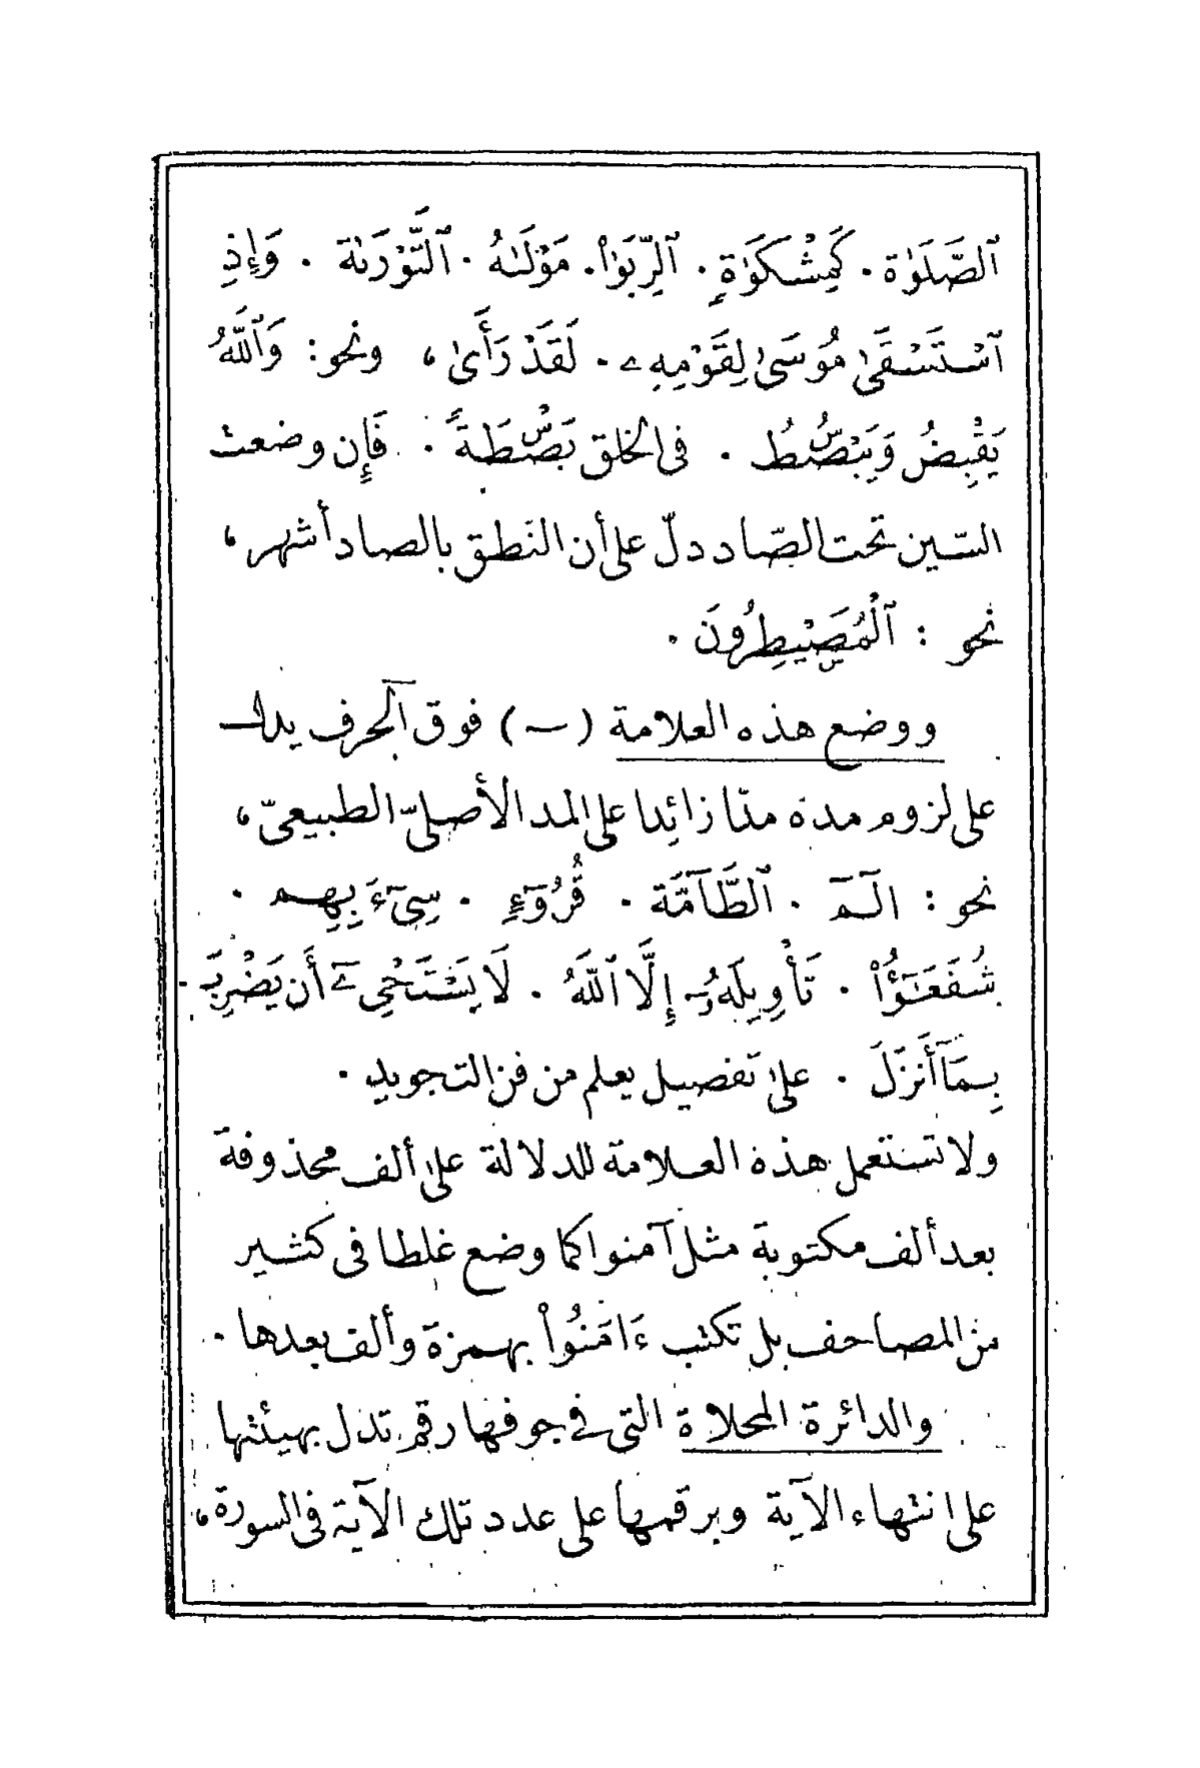 ٱلصَّلَوٰة . كَمِشْكَوٰةٍ . ٱلرِّبَوٰا۟ . مَوْلَىٰهُ . ٱلتَّوْرَىٰة . وَإِذِ
ٱسْتَسْقَىٰ مُوسَىٰ لِقَوْمِهِۦ . لَقَدْ رَأَىٰ ، ونحو: وَٱللَّهُ
يَقْبِضُ وَيَبْصُۜطُ . فى الخلق بَصْۜطَةً . فَإِن وضعت
السّين تحت الصّاد دلّ على أن النّطق بالصاد أشهر ،
نحو : ٱلْمُصَۣيْطِرُونَ .
ووضع هذه العلامة (~) فوق الحرف يدل
على لزوم مدّه مدّا زائدا على المد الأصلىّ الطبيعىّ ،
نحو : الٓـمٓ . ٱلطَّآمَّة . قُرُوٓءٍ . سِىٓءَ بِهِم .
شُفَعَٰٓؤُا۟ . تَأْوِيلَهُۥٓ إِلَّا ٱللَّهُ . لَا يَسْتَحْىِۦٓ أَن يَضْرِبَ .
بِمَآ أَنزَلَ . على تفصيل يعلم من فن التجويد .
ولا تستعمل هذه العلامة للدلالة على ألف محذوفة
بعد ألف مكتوبة مثل آمنوا كما وضع غلطا فى كثير
من المصاحف بل تكتب ءَامَنُوا۟ بهمزة وألف بعدها .
والدائرة المحلاة التى فى جوفها رقم تدل بهيئتها
على انتهاء الآية وبرقمها على عدد تلك الآية فى السورة ،